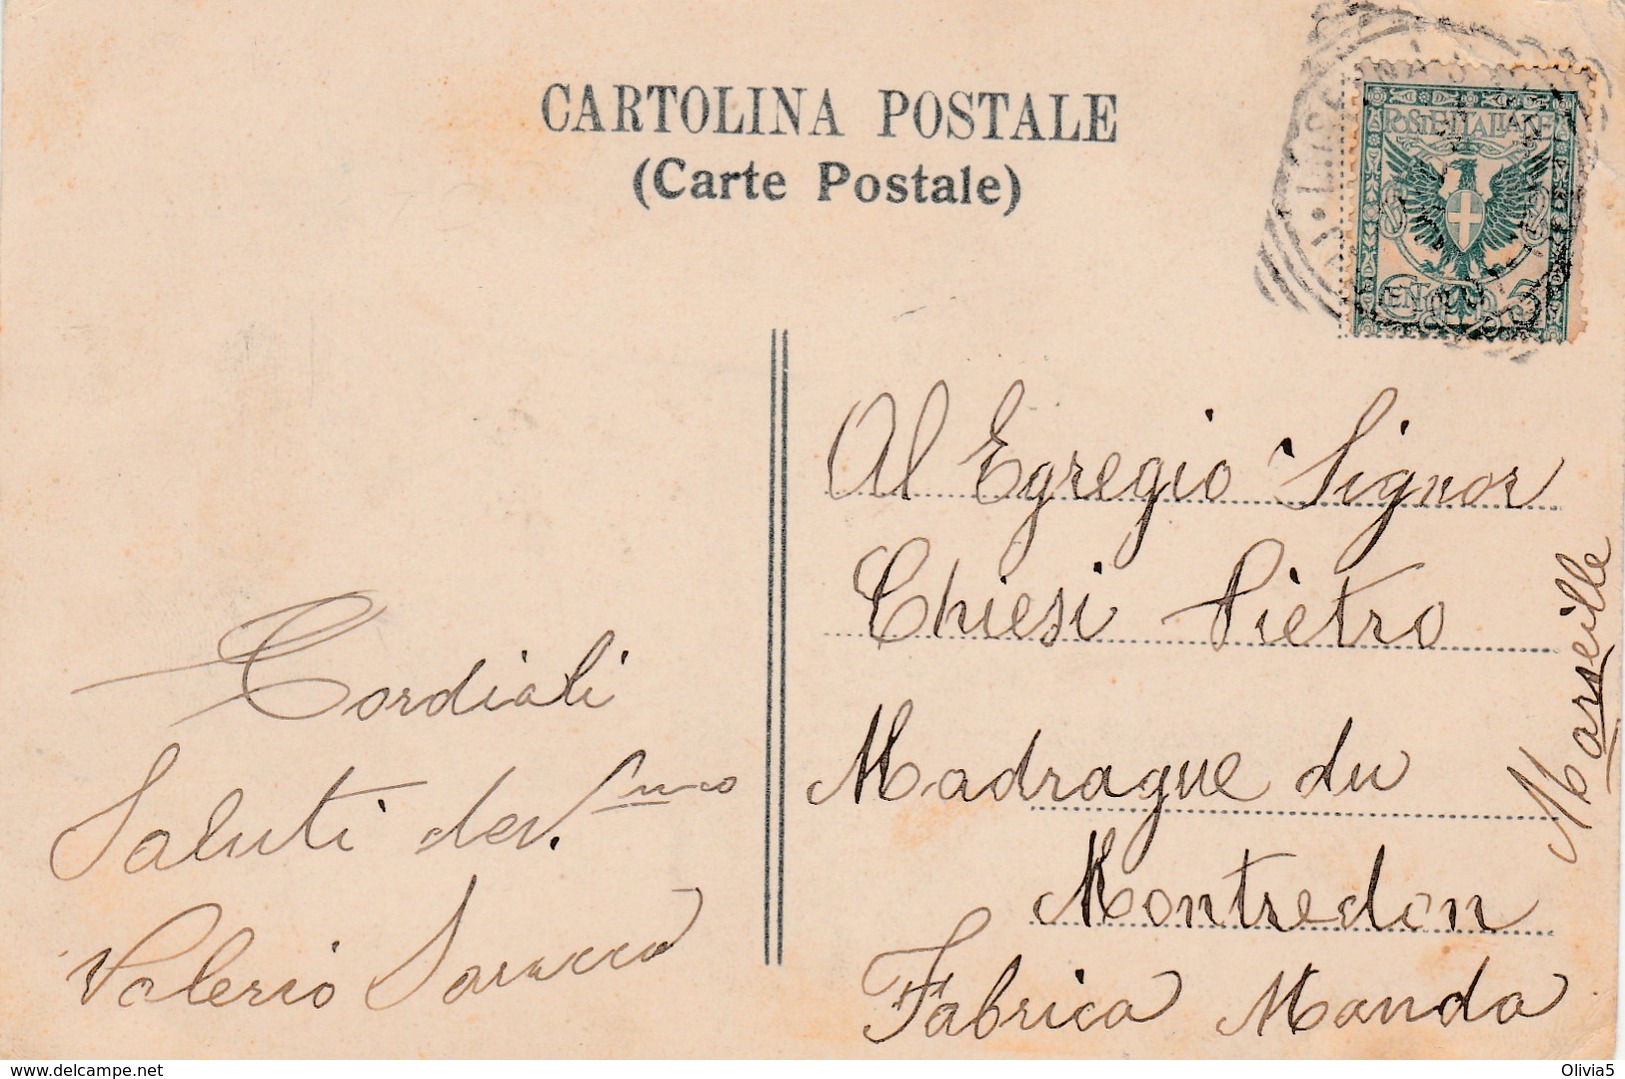 CARTOLINA POSTALE
(Carte Postale)
POSTE ITALIANE
Cordiali
Saluti dev.
Valerio
Al Egregio Signor
Chiesi Pietro
Madrague du
Montredon
Fabrica Manda
Marseille
Olivia5